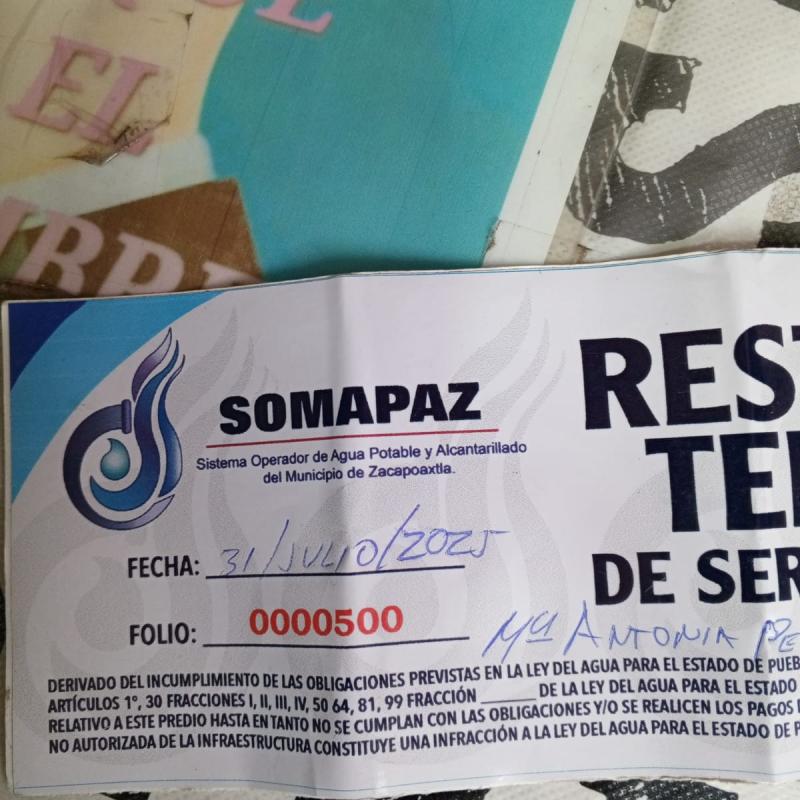 EL
SOMAPAZ
Sistema Operador de Agua Potable y Alcantarillado
del Municipio de Zacapoaxtla.
REST
TE
DE SER
FECHA: 31/JULIO/2025
FOLIO: 0000500
Mª ANTONIA PE
DERIVADO DEL INCUMPLIMIENTO DE LAS OBLIGACIONES PREVISTAS EN LA LEY DEL AGUA PARA EL ESTADO DE PUEB
ARTÍCULOS 1°, 30 FRACCIONES I, II, III, IV, 50 64, 81, 99 FRACCIÓN ______ DE LA LEY DEL AGUA PARA EL ESTADO
RELATIVO A ESTE PREDIO HASTA EN TANTO NO SE CUMPLAN CON LAS OBLIGACIONES Y/O SE REALICEN LOS PAGOS
NO AUTORIZADA DE LA INFRAESTRUCTURA CONSTITUYE UNA INFRACCIÓN A LA LEY DEL AGUA PARA EL ESTADO DE P